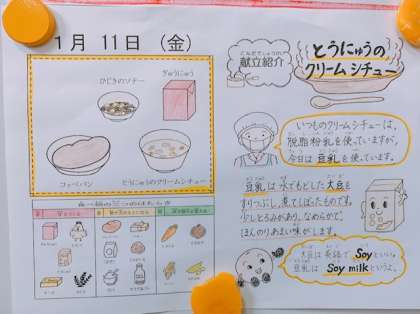 1月 11日 (金)
ひじきのソテー
ぎゅうにゅう
コッペパン
とうにゅうのクリームシチュー
献立紹介
とうにゅうの
クリームシチュー
いつものクリームシチューは、
脱脂粉乳を使っていますが、
今日は豆乳を使っています。
豆乳は水でもどした大豆を
すりつぶし、煮てしぼったものです。
少しとろみがあり、なめらかで、
ほんのりあまい味がします。
大豆は英語で Soy といい、
豆乳は Soy milk というよ。